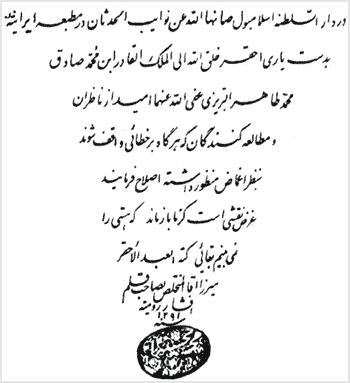 در دار السلطنه اسلامبول صانها الله عن نوایب الحدثان در مطبعه ایرانیه
بدستیاری احقر خلق الله الی الملک القادر ابن محمد صادق
محمد طاهر التبریزی عفی الله عنهما امید از ناظران
و مطالعه کنندگان که هرگاه بر خطائی واقف شوند
بنظر اغماض منظور داشته اصلاح فرمایند
غرض نقشی است کز ما باز ماند که هستی را
نمی بینم بقائی کتبه العبد الاحقر
میرزا آقا المتخلص بصاحب قلم
افشار رومیه
سنه ۱۲۹۱